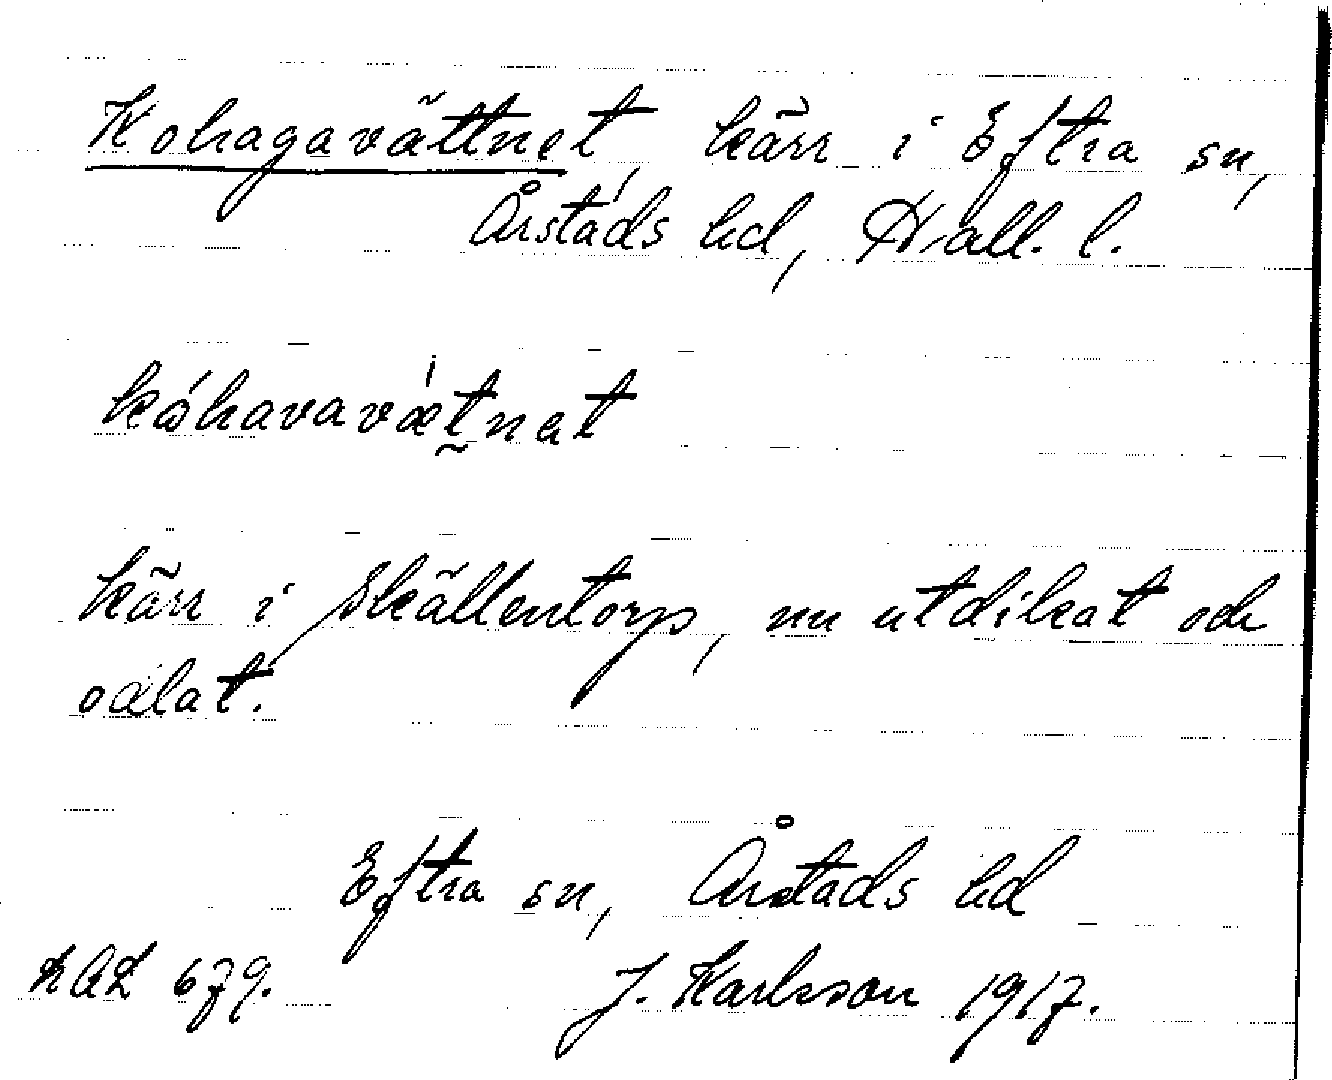 Kohagavättnet, kärr i Eftra sn,
Årstads hd, Hall. l.
kóhavavætnat
kärr i Skällentorp, nu utdikat och
odlat.
Eftra sn, Årstads hd
679.
J. Karlsson 1917.